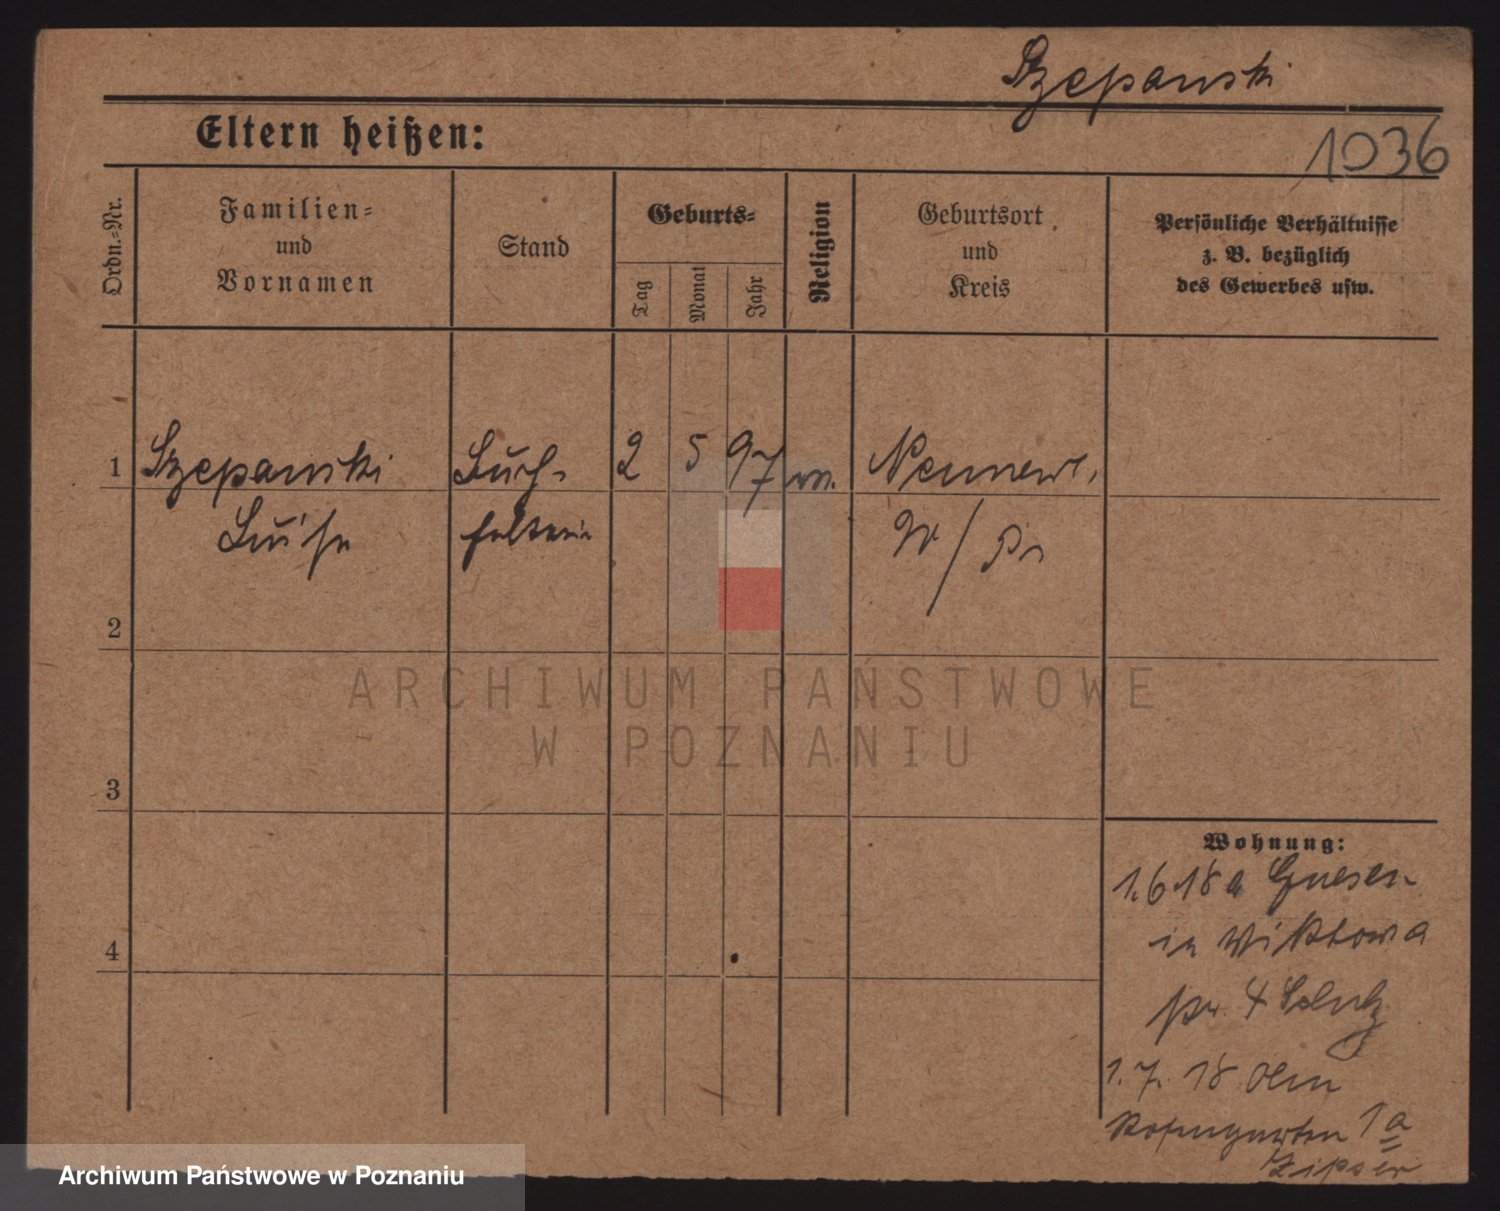 Szepanski
1036
Eltern heißen:
Ordn.=Nr.
Familien=
und
Vornamen
Stand
Geburts=
Tag
Monat
Jahr
Religion
Geburtsort
und
Kreis
Persönliche Verhältnisse
z. B. bezüglich
des Gewerbes usw.
1 Szepanski Buch- 2 5 97
Luise halterin W/Pr
2
3
4
Wohnung:
1.6 18 a Gnesen
in Wiktowa
pr. 4 Schulz
1. 7. 18
Rosengarten 1a
Zipser
ARCHIWUM PAŃSTWOWE
W POZNANIU
Archiwum Państwowe w Poznaniu